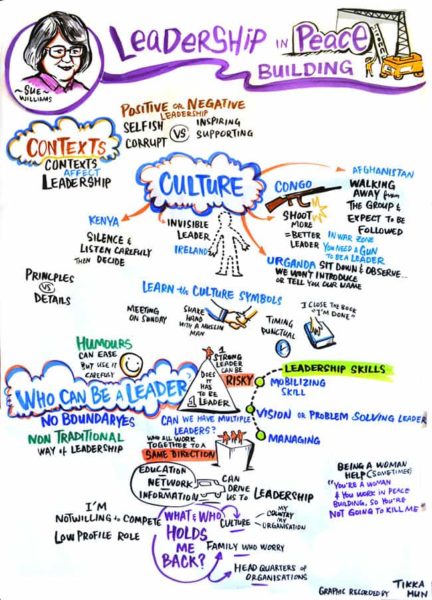 LEADERSHIP IN PEACE
BUILDING
~SUE~
WILLIAMS
POSITIVE OR NEGATIVE
LEADERSHIP
SELFISH
CORRUPT
VS
INSPIRING
SUPPORTING
CONTEXTS
CONTEXTS
AFFECT
LEADERSHIP
CULTURE
KENYA
SILENCE &
LISTEN CAREFULLY
THEN DECIDE
INVISIBLE
LEADER
IRELAND
CONGO
SHOOT
MORE
=BETTER
LEADER
IN WAR ZONE
YOU NEED A GUN
TO BE A LEADER
AFGHANISTAN
WALKING
AWAY from
THE GROUP &
EXPECT TO BE
FOLLOWED
URGANDA SIT DOWN & OBSERVE...
WE WON'T INTRODUCE
OR TELL YOU OUR NAME
PRINCPLES
VS
DETAILS
LEARN the CULTURE SYMBOLS
MEETING
ON SUNDAY
SHAKE
HAND
WITH A MUSLIM
MAN
TIMING
PUNCTUAL
I CLOSE THE BOOK
"I'M DONE"
HUMOURS
CAN EASE
BUT USE it
CAREFULLY
WHO CAN BE A LEADER
NO BOUNDARYES
NON TRADITIONAL
WAY of LEADERSHIP
1
STRONG
LEADER
CAN BE
RISKY
DOES
IT HAS
TO BE
1 LEADER
CAN WE HAVE MULTIPLE
LEADERS?
WHO ALL WORK
TOGETHER TO A
SAME DIRECTION
LEADERSHIP SKILLS
MOBILIZING
SKILL
VISION OR PROBLEM SOLVING LEADER
MANAGING
EDUCATION
NETWORK
INFORMATION
CAN
DRIVE
US TO
LEADERSHIP
BEING A WOMAN
HELP (SOMETIMES)
"YOU'RE A WOMAN
& YOU WORK IN PEACE
BUILDING, SO YOU'RE
NOT GOING TO KILL ME"
I'M
NOT WILLING to COMPETE
LOW PROFILE ROLE
WHAT & WHO
HOLDS
ME
BACK?
CULTURE
MY
COUNTRY
MY
ORGANISATION
FAMILY WHO WORRY
HEAD QUARTERS OF
ORGANISATIONS
GRAPHIC RECORDED BY
TIKKA
HUN